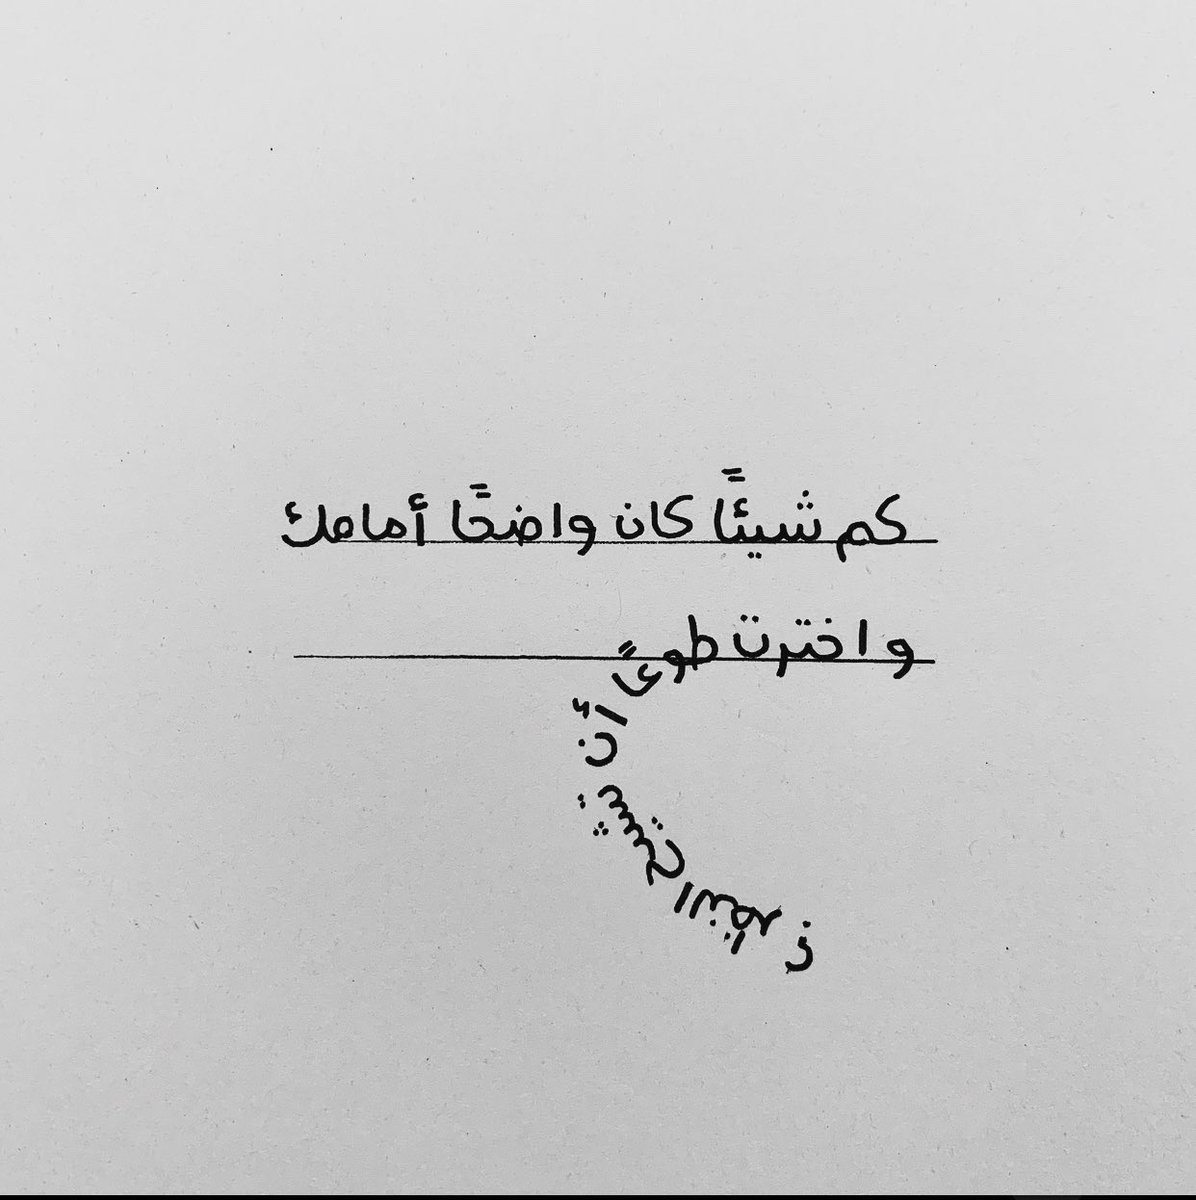 كم شيئًا كان واضحًا أمامك
و اخترت طوعًا أن تشيح النظر ؟